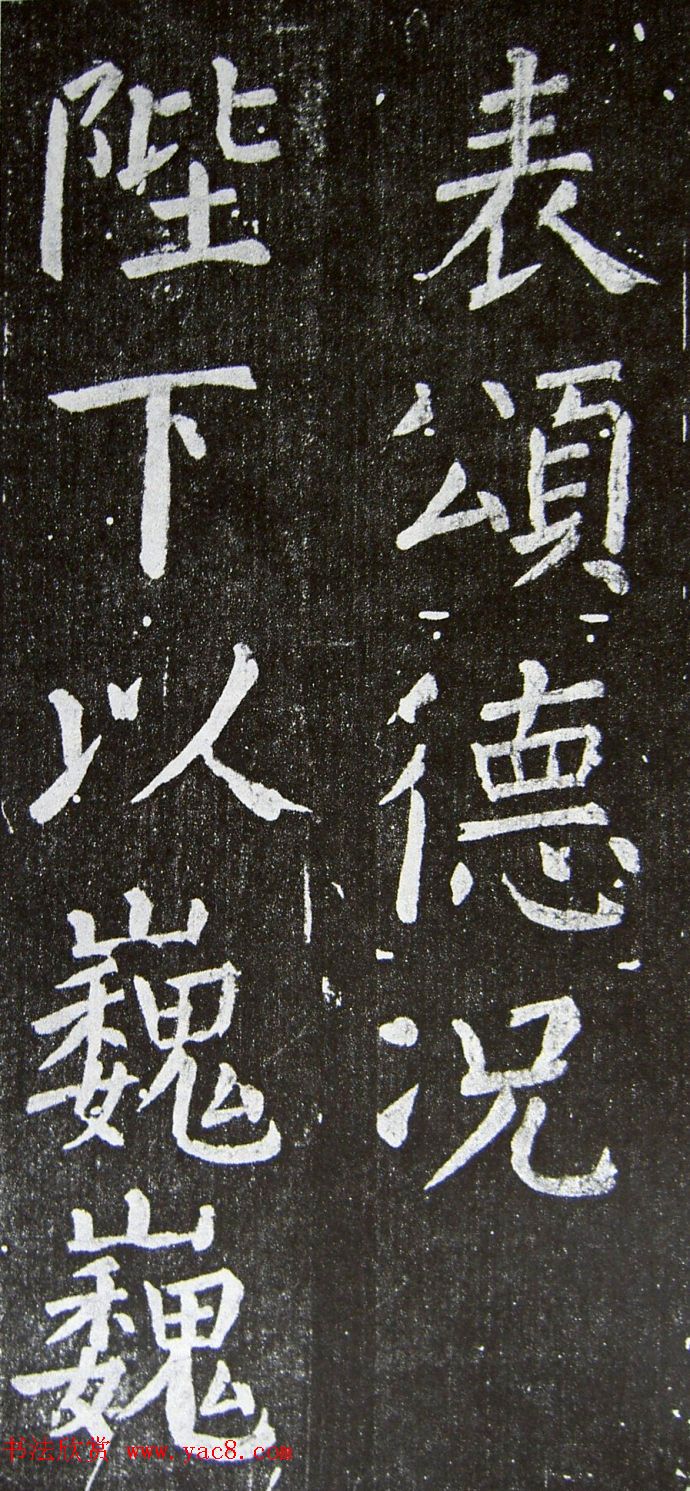 表頌德况
陛下以巍巍
书法欣赏 www.yac8.com